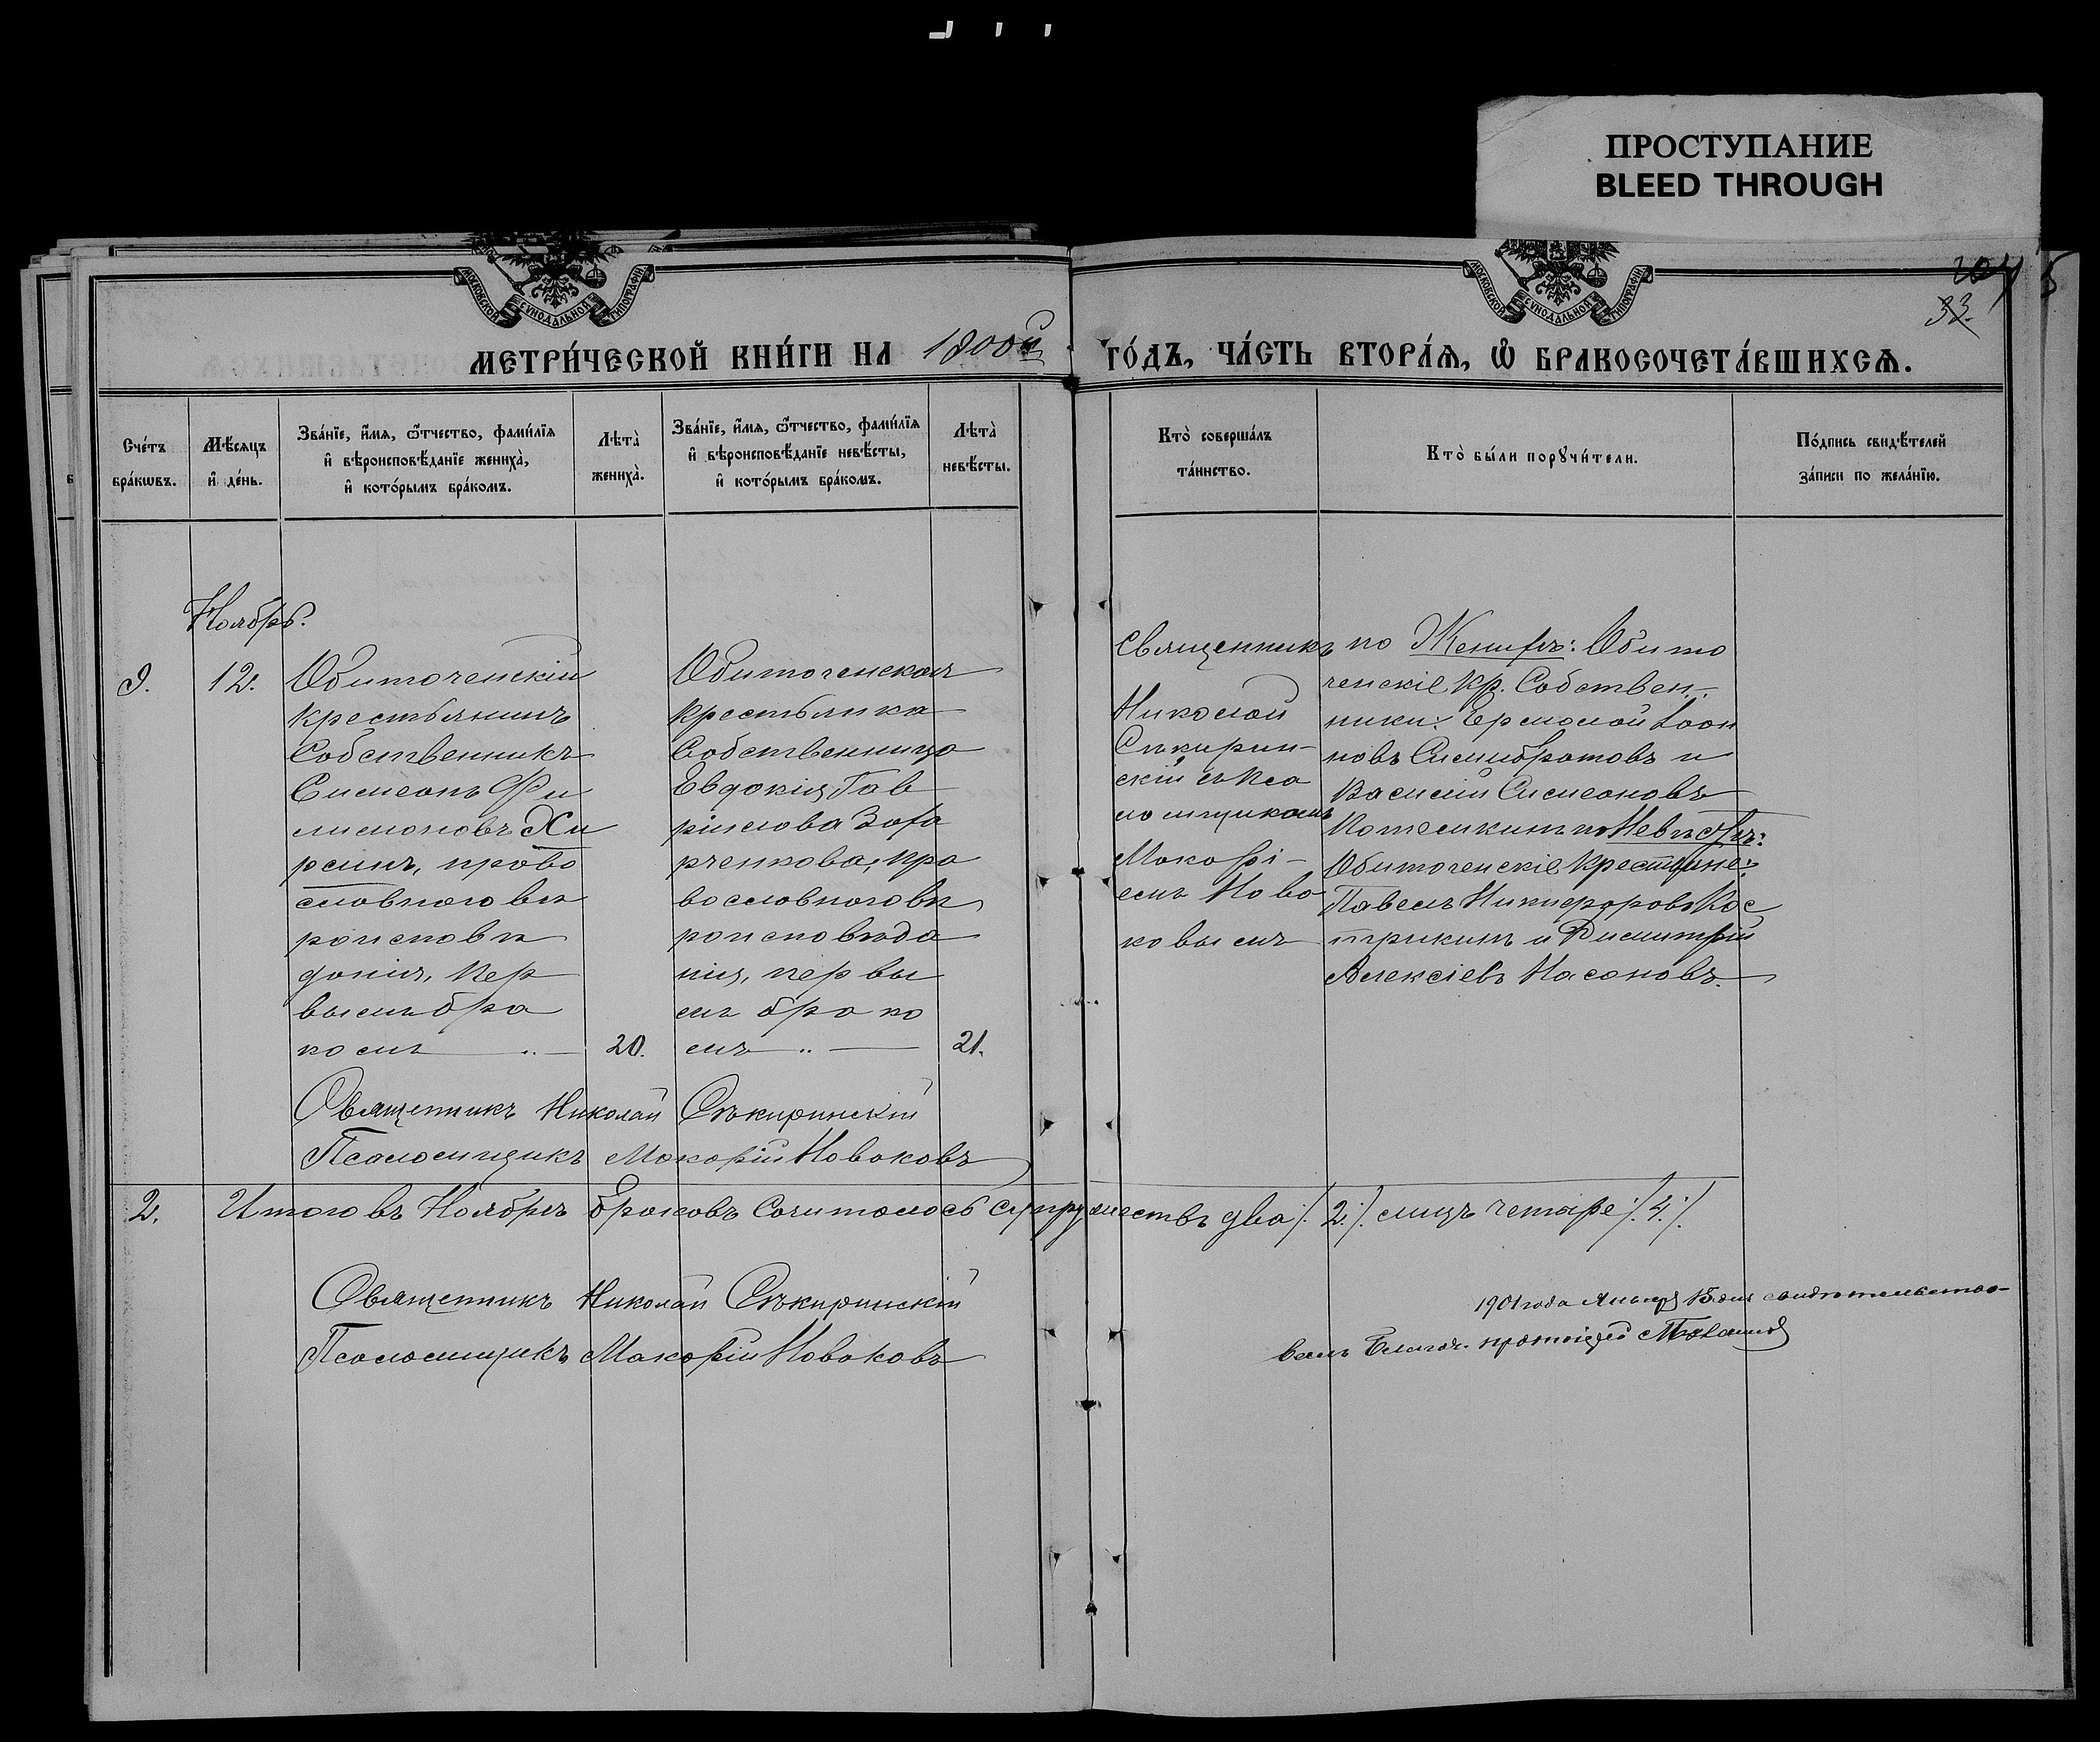 ПРОСТУПАНИЕ
BLEED THROUGH
МОСКОВСКОЙ СУНОДАЛЬНОЙ ТИПОГРАФІИ
МОСКОВСКОЙ СУНОДАЛЬНОЙ ТИПОГРАФІИ
33.
МЕТРИ́ЧЕСКОЙ КНИ́ГИ НА 1900й го́дъ, ЧА́СТЬ ВТОРА́Я, Ѿ БРАКОСОЧЕТА́ВШИХСЯ.
Сче́тъ бра́кѡвъ.
Мѣ́сяцъ и҆ де́нь.
Зва́нїе, и҆́мя, ѻ҆́тчество, фами́лїя
и҆ вѣроисповѣ́данїе жениха̀,
и҆ кото́рымъ бра́комъ.
Лѣта̀ жениха̀.
Зва́нїе, и҆́мя, ѻ҆́тчество, фами́лїя
и҆ вѣроисповѣ́данїе невѣ́сты,
и҆ кото́рымъ бра́комъ.
Лѣта̀ невѣ́сты.
Кто̀ соверша́лъ
та́инство.
Кто̀ бы́ли порꙋчи́тели.
По́дпись свидѣ́телей
за́писи по жела́нїю.
Ноябрь.
12.
Обиточенскій
крестьянинъ
Собственникъ
Симеонъ Фи
лимоновъ Хи
ринъ, право
славнаго вѣ
роисповѣ
данія, пер
вымъ бра
комъ 20.
Обиточенская
крестьянка
Собственница
Евдокія Гав
ріилова Заха
рченкова, пра
вославнаго вѣ
роисповѣда
нія, первы
мъ брако
мъ 21.
Священникъ
Николай
Сѣкирин-
скій съ Пса
ломщикомъ
Макарі-
емъ Нова
ковымъ
по Женихѣ: Обито
ченскіе Кр. Собствен-
ники: Ермолай Іоан
новъ Силибратовъ и
Василій Симеоновъ
Потемкинъ по Невѣстѣ:
Обиточенскіе Крестьяне:
Павелъ Никифоровъ Кос
трикинъ и Димитрій
Алексіевъ Насоновъ.
Священникъ Николай Сѣкиринскій
Псаломщикъ Макарій Новаковъ
2. Итого въ Ноябрѣ браковъ Считалось супружествъ два /. 2. /. лицъ четыре /. 4. /.
Священникъ Николай Сѣкиринскій
Псаломщикъ Макарій Новаковъ
1901 года Января 15 дня свидѣтельство-
валъ Благоч. протоіерей